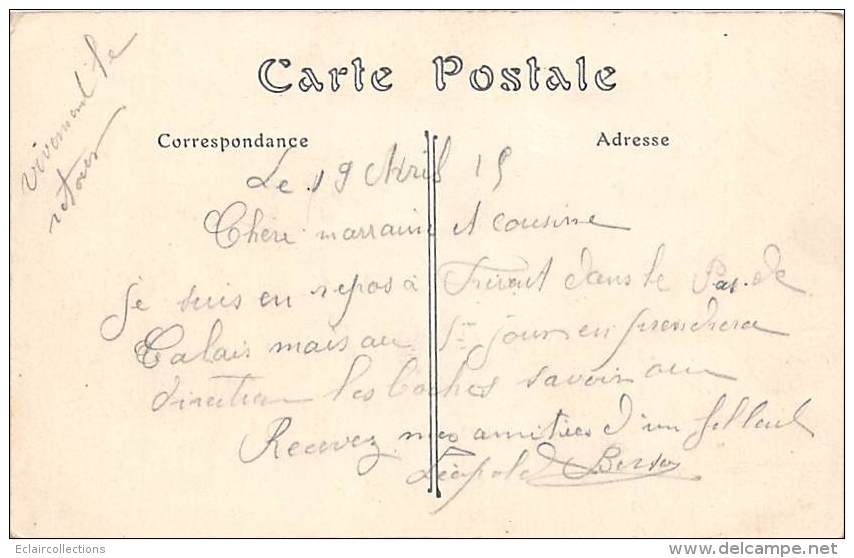 vivement le
retour
Carte Postale
Correspondance
Adresse
Le 19 Avril 15
Chère marraine et cousine
je suis en repos à dans le Pas-de
Calais mais au 1er jour en prendera
direction les boches savoir ou
Recevez mes amitiés d'un filleul
Léopold
Eclaircollections
delcampe.net